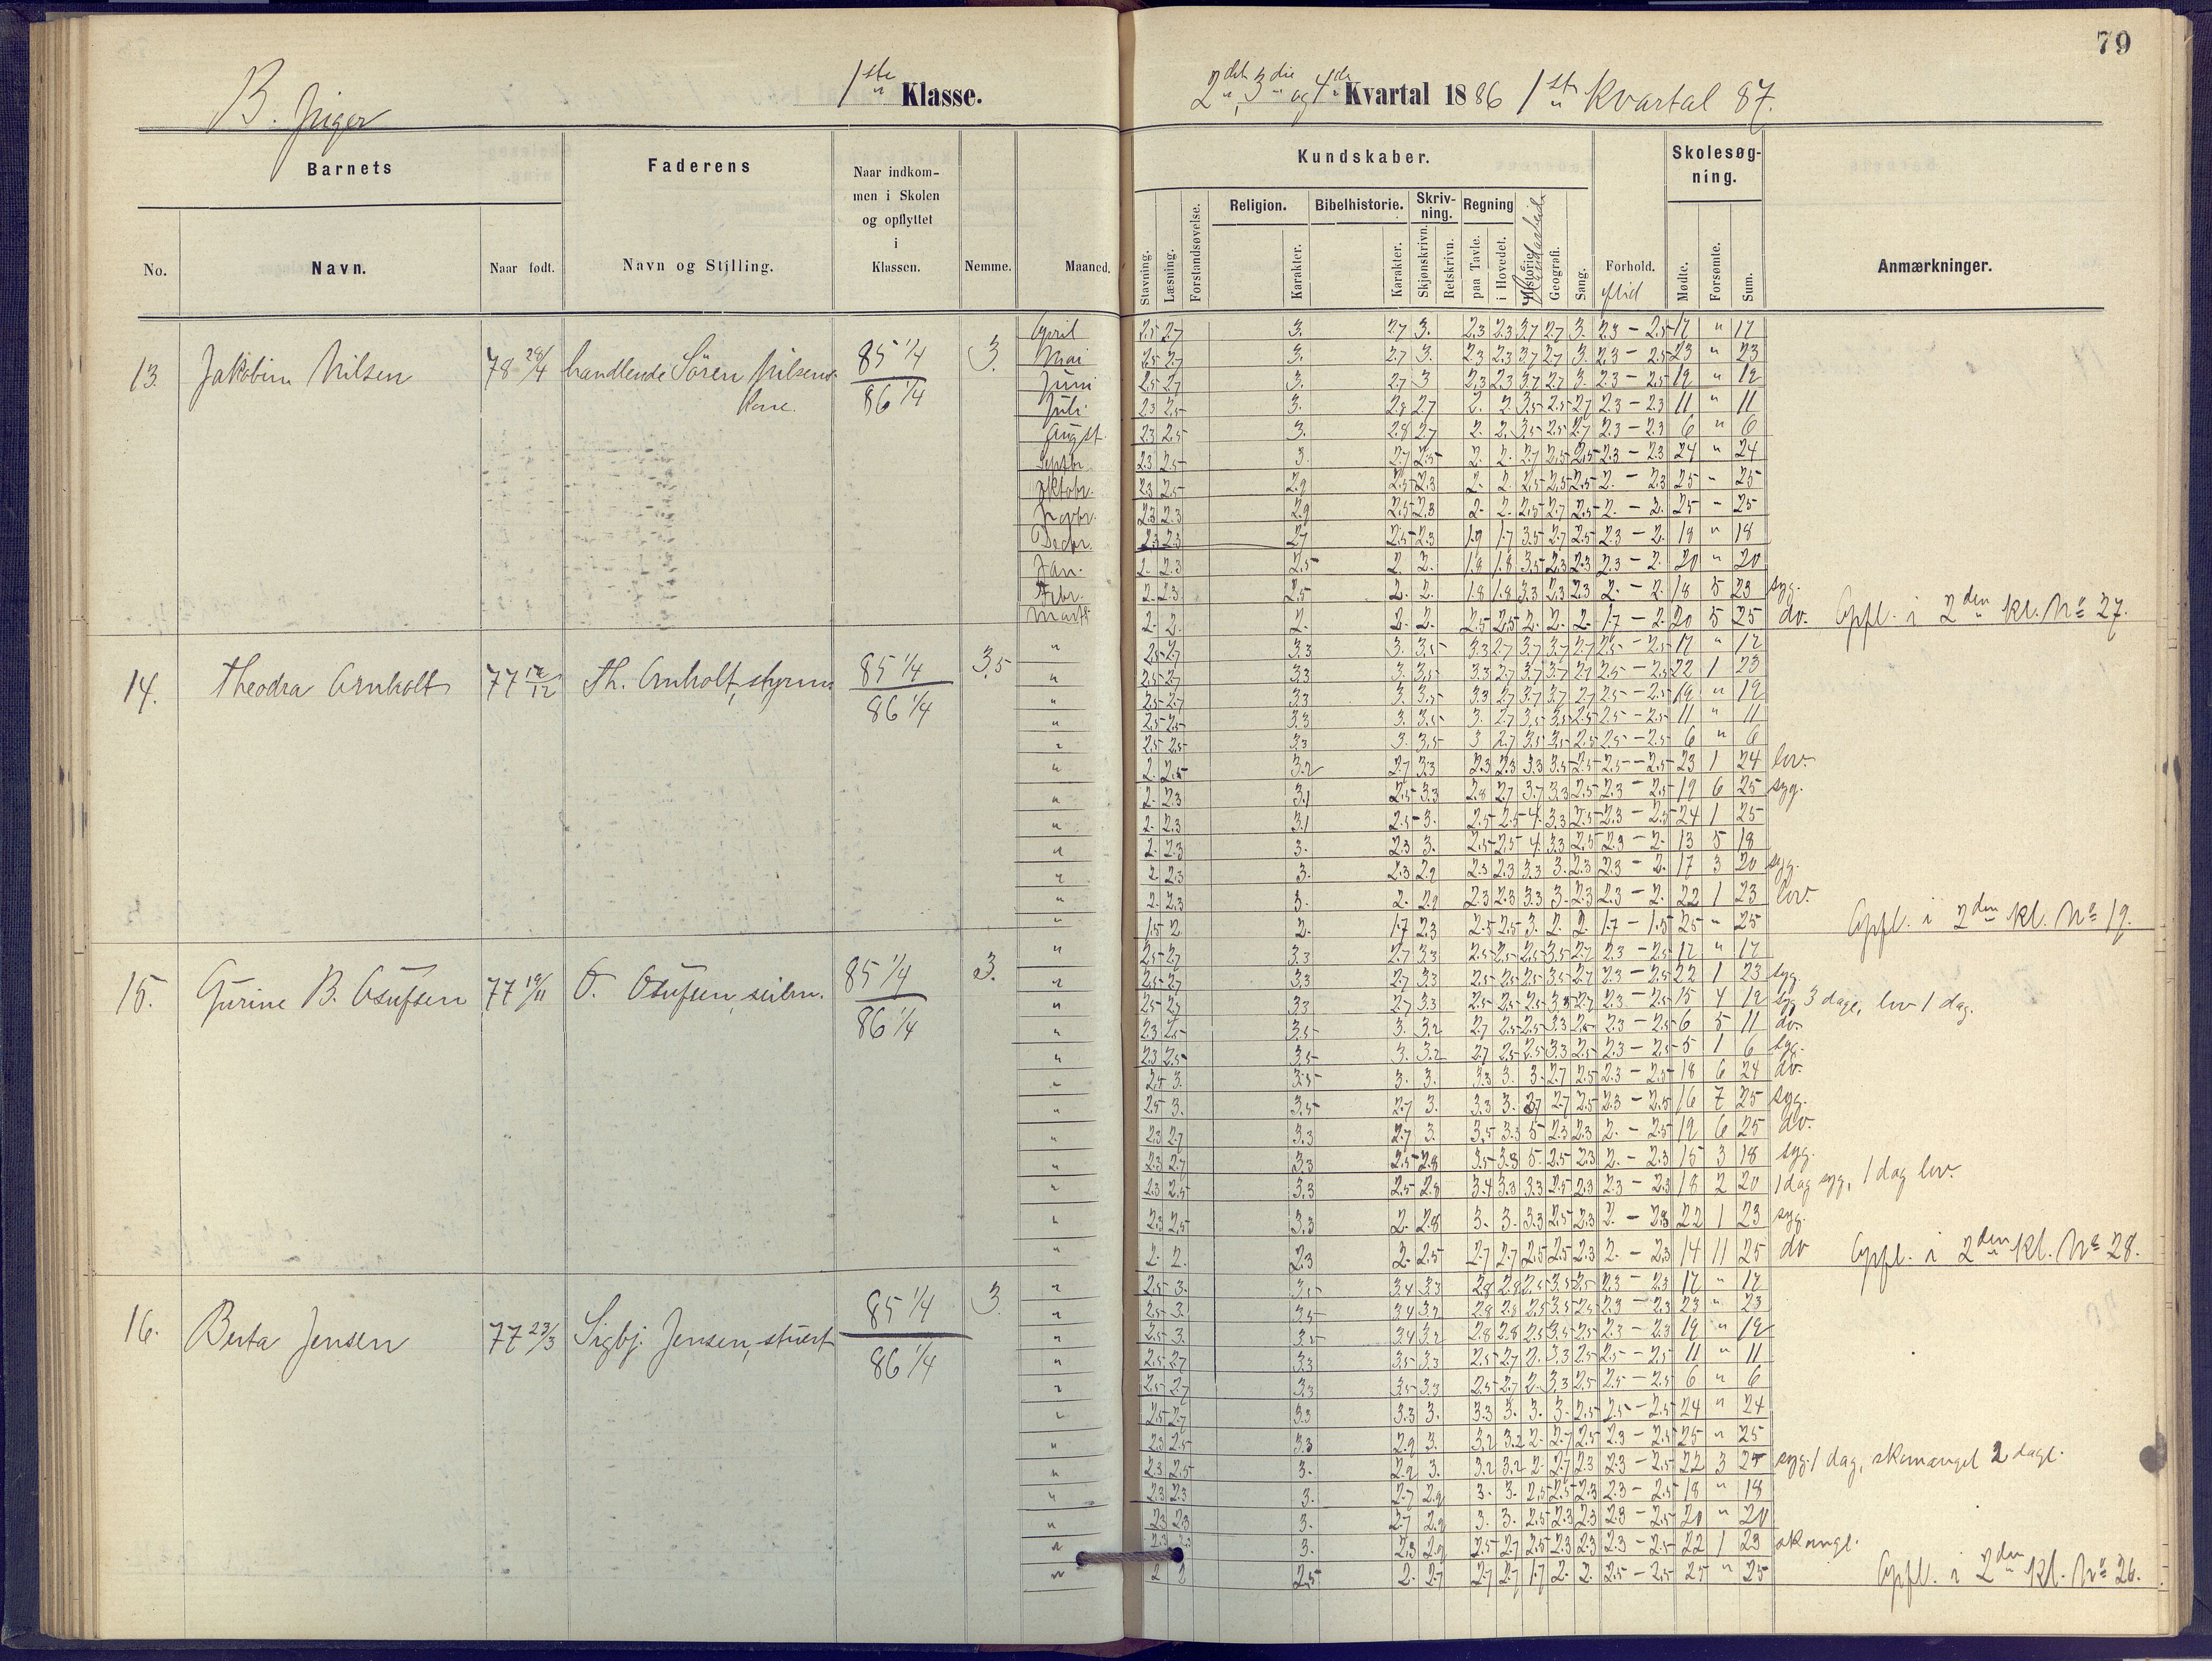 79
B. Piger
1ste Klasse.
2det, 3die og 4de Kvartal 1886 1ste Kvartal 87.
Barnets
Faderens
Naar indkom-
men i Skolen
og opflyttet
i
Klassen.
No.
Navn.
Naar født.
Navn og Stilling.
Nemme.
Maaned.
Kundskaber.
Skolesøg-
ning.
Religion.
Bibelhistorie.
Skriv-
ning.
Regning
Stavning.
Læsning.
Forstandsøvelse.
Karakter.
Karakter.
Skjønskrivn.
Retskrivn.
paa Tavle.
i Hovedet.
Historie.
Haandarbeide
Geografi.
Sang.
Forhold.
flid
Mødte.
Forsømte.
Sum.
Anmærkninger.
13. Jakobine Nilsen 78 28/4 handlende Sören Nilsens
kone.
85 1/4
86 1/4
3.
April 2.5 2.7 3. 2.7 3. 2.3 2.3 3.7 2.7 3. 2.3 - 2.5 17 " 17
Mai 2.5 2.7 3. 2.7 3. 2.3 2.3 3.7 2.7 3. 2.3 - 2.5 23 " 23
Juni 2.5 2.7 3. 2.7 3 2.3 2.3 3.7 2.7 3. 2.3 - 2.5 19 " 19
Juli 2.3 2.5 3. 2.8 2.7 2. 2. 3.5 2.5 2.7 2.3 - 2.3 11 " 11
Augst. 2.3 2.5 3. 2.8 2.7 2. 2. 3.5 2.5 2.7 2.3 - 2.3 6 " 6
Septbr. 2.3 2.5 3. 2.7 2.5 2. 2. 2.7 2.5 2.5 2.3 - 2.3 24 " 24
Oktobr. 2.3 2.5 2.9 2.5 2.3 2. 2. 2.5 2.5 2.5 2. - 2.3 25 " 25
Novbr. 2.3 2.3 2.9 2.5 2.3 2. 2. 2.5 2.7 2.5 2. - 2. 25 - 25
Decbr. 2.3 2.3 2.7 2.5 2.3 1.9 1.7 3.5 2.7 2.5 2.3 - 2. 18 " 18
Jan. 2. 2.3 2.5 2. 2. 1.8 1.8 3.5 2.3 2.3 2.3 - 2. 20 " 20
Febr. 2. 2.3 2.5 2. 2. 1.8 1.8 3.3 2.3 2.3 2. - 2. 18 5 23 syg.
Marts 2. 2. 2. 2. 2. 2.5 2.5 2. 2. 2. 1.7 - 2. 20 5 25 do. Opfl. i 2den kl. No 27.
14. Theodra Arnholt 77 12/12 Th. Arnholt, styrm
85 1/4
86 1/4
3.5
" 2.5 2.7 3.3 3. 3.5 3.3 2.7 3.7 3.7 2.7 2.5 - 2.5 17 " 17
" 2.5 2.7 3.3 3. 3.5 3.3 2.7 3.7 3.7 2.7 2.5 - 2.5 22 1 23
" 2.5 2.7 3.3 3. 3.5 3.3 2.7 3.7 3.7 2.7 2.5 - 2.5 19 " 19
" 2.5 2.5 3.3 3. 3.5 3. 2.7 3.5 3.5 2.5 2.5 - 2.5 11 " 11
" 2.5 2.5 3.3 3. 3.5 3 2.7 3.5 3.5 2.5 2.5 - 2.5 6 " 6
" 2. 2.5 3.2 2.7 3.3 2.3 2.3 3.3 3.5 2.5 2.5 - 2.5 23 1 24 lov.
" 2. 2.3 3.1 2.5 3.3 2.8 2.7 3.7 3.3 2.5 2.3 - 2.5 19 6 25 syg.
" 2. 2.3 3.1 2.5 3. 2.5 2.5 4. 3.3 2.5 2.3 - 2.5 24 1 25
" 2. 2.3 3. 2.3 3. 2.5 2.5 4. 3.3 2.5 2.3 - 2. 13 5 18
" 2. 2.3 3. 2.3 2.9 2.3 2.3 3.3 3. 2.3 2.3 - 2. 17 3 20 syg.
" 2. 2.3 3. 2. 2.9 2.3 2.3 3.3 3. 2.3 2.3 - 2. 22 1 23 lov.
" 1.5 2 2. 1.7 2.3 2.5 2.5 3. 2. 2. 1.7 - 1.5 25 " 25 Opfl. i 2den kl. No 19.
15. Gurine B. Osufsen 77 19/11 O. Osufsen, seilm.
85 1/4
86 1/4
3.
" 2.5 2.7 3.3 2.7 3.3 2.5 2.5 2.5 3.5 2.7 2.3 - 2.5 17 " 17
" 2.5 2.7 3.3 2.7 3.3 2.5 2.5 2.5 3.5 2.7 2.3 - 2.5 22 1 23 syg
" 2.5 2.7 3.3 2.7 3.3 2.5 2.5 2.5 3.5 2.7 2.3 - 2.5 15 4 19 syg 3 dage, lov 1 dag.
" 2.3 2.5 3.5 3. 3.2 2.7 2.5 2.5 3.3 2.5 2.3 - 2.5 6 5 11 do.
" 2.3 2.5 3.5 3. 3.2 2.7 2.5 2.5 3.3 2.5 2.3 - 2.5 5 1 6 syg.
" 2.5 3. 3.5 3. 3. 3.3 3. 3. 2.7 2.5 2.3 - 2.5 18 6 24 do.
" 2.5 3. 3.5 2.7 3. 3.3 3. 3.7 2.7 2.5 2.3 - 2.5 16 7 25 syg.
" 2.3 2.7 3.3 2.7 3. 3.5 3.3 5 2.3 2.3 2. - 2.5 19 6 25 do.
" 2.3 2.7 3.3 2.5 2.8 3.5 3.3 5. 2.5 2.3 2. - 2.3 15 3 18 syg.
" 2.3 2.5 3.3 2.5 2.8 3.4 3.3 3.3 2.5 2.3 2.3 - 2.3 18 2 20 1 dag syg, 1 dag lov.
" 2.3 2.5 3.3 2. 2.8 3. 3. 3.3 2.5 2.3 2. - 2.3 22 1 23 syg.
" 2. 2. 2.3 2. 2.5 2.7 2.7 2.5 2.5 2.3 2. - 2.3 14 11 25 do Opfl. i 2den kl. No 28.
16. Berta Jensen 77 23/3 Sigbj. Jensen, stuert
85 1/4
86 1/4
3.
" 2.5 3. 3.5 3.4 3.3 2.8 2.8 2.5 3.5 2.5 2.3 - 2.3 17 " 17
" 2.5 3. 3.5 3.4 3.2 2.8 2.8 2.5 3.5 2.5 2.3 - 2.3 23 " 23
" 2.5 3. 3.5 3.4 3.2 2.8 2.8 2.5 3.5 2.5 2.3 - 2.3 19 " 19
" 2.5 2.7 3.3 3.5 3.3 2.5 2.7 2. 3.3 2.5 2.5 - 2.5 11 " 11
" 2.5 2.7 3.3 3.5 3.3 2.5 2.7 2. 3.3 2.5 2.5 - 2.5 6 " 6
" 2.5 2.7 3.3 3.3 3. 3.3 3. 3. 3. 2.5 2.5 - 2.5 24 " 24
" 2.3 2.5 3.3 2.9 3. 3.2 3.2 2. 2.7 2.5 2.3 - 2.5 25 " 25
" 2.3 2.5 3. 2.9 3. 3.2 3.2 2. 2.7 2.3 2.3 - 2.5 22 3 25 syg 1 dag, skomangel 2 dage.
" 2.3 2.3 3. 2.7 2.9 3. 3. 2.5 2.5 2.3 2.3 - 2.5 18 " 18
" 2.3 2.3 3. 2.7 2.9 3. 3. 2.5 2.3 2.3 2.3 - 2.5 20 " 20
" 2.3 2.3 3. 2.3 2.9 2.5 2.7 2.5 2.3 2.3 2.3 - 2.5 22 1 23 skomgl.
" 2 2 2.5 2. 2.7 2.7 2.7 1.7 2. 2. 2.5 - 2.5 25 " 25 Opfl. i 2den kl. No 26.